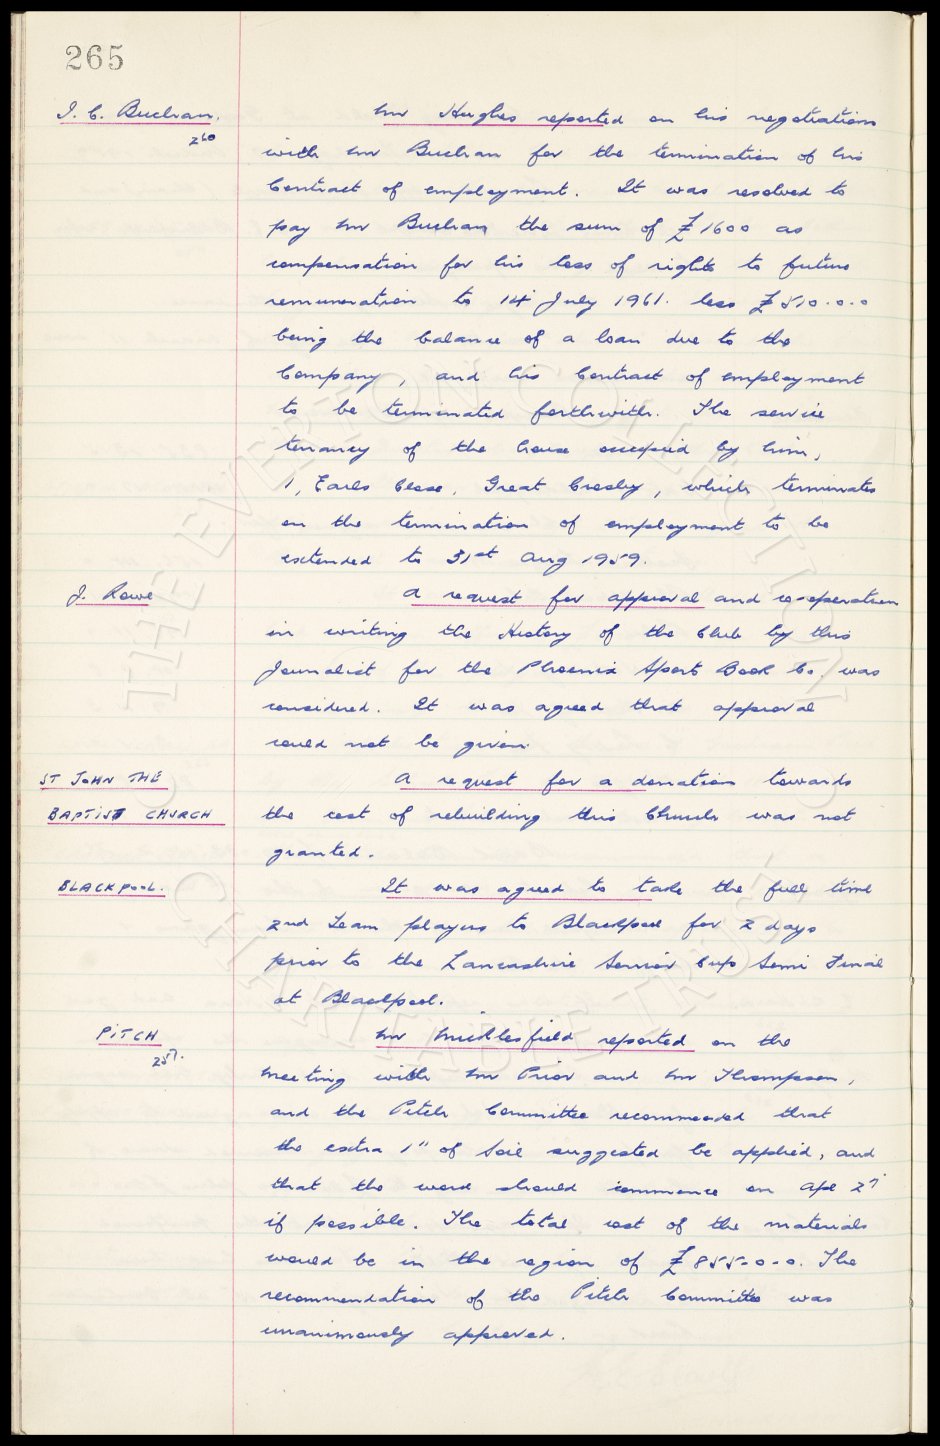 265
I. C. Buchan.
260
Mr Hughes reported on his negotiation
with Mr Buchan for the termination of his
Contract of employment. It was resolved to
pay Mr Buchan the sum of £1600 as
compensation for his loss of rights to future
remuneration to 14 July 1961. less £510.0.0
being the balance of a loan due to the
Company, and his Contract of employment
to be terminated forthwith. The service
tenancy of the house occupied by him,
1, Earls Close, Great Crosby, which terminates
on the termination of employment to be
extended to 31st Aug 1959.
J. Rowe
A request for approval and co-operation
in writing the History of the Club by this
Journalist for the Phoenix Sport Book Co. was
considered. It was agreed that approval
could not be given.
ST JOHN THE
BAPTIST CHURCH
A request for a donation towards
the cost of rebuilding this Church was not
granted.
BLACKPOOL.
It was agreed to take the full time
2nd Team players to Blackpool for 2 days
prior to the Lancashire Senior Cup Semi Final
at Blackpool.
PITCH
257.
Mr Micklesfield reported on the
meeting with Mr Prior and Mr Thompson,
and the Pitch Committee recommended that
the extra 1" of Soil suggested be applied, and
that the work should commence on Apl 27
if possible. The total cost of the materials
would be in the region of £855-0-0. The
recommendation of the Pitch Committee was
unanimously approved.
THE EVERTON COLLECTION
CHARITABLE TRUST